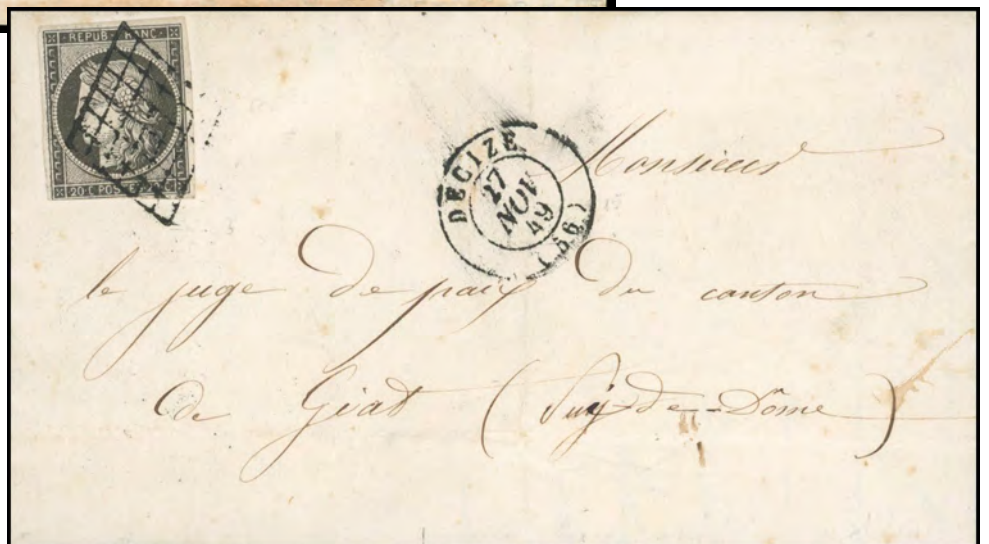 REPUB FRANC
20 C POSTE 20 C
DECIZE
27
NOV
49
(56)
Monsieur
le juge de paix du canton
de Giat (Puy-de-Dôme)